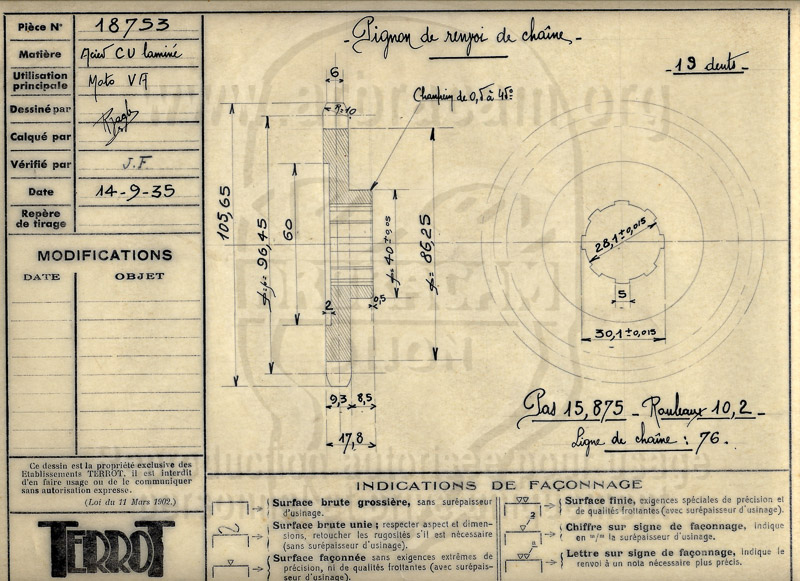 Pièce N° 18753
Matière Acier CU laminé
Utilisation principale Moto VA
Dessiné par
Calqué par
Vérifié par J.F
Date 14-9-35
Repère de tirage
MODIFICATIONS
DATE OBJET
Ce dessin est la propriété exclusive des
Etablissements TERROT, il est interdit
d'en faire usage ou de le communiquer
sans autorisation expresse.
(Loi du 11 Mars 1902.)
TERROT
- Pignon de renvoi de chaîne -
- 19 dents -
6
Chanfrein de 0,5 à 45°
105,65
96,45
60
40 ± 0,05
86,25
2
0,5
9,3 8,5
17,8
28,1 ± 0,015
5
30,1 ± 0,015
Pas 15,875 - Rouleaux 10,2 -
Ligne de chaîne : 76.
INDICATIONS DE FAÇONNAGE
Surface brute grossière, sans surépaisseur
d'usinage.
Surface brute unie ; respecter aspect et dimen-
sions, retoucher les rugosités s'il est nécessaire
(sans surépaisseur d'usinage).
Surface façonnée sans exigences extrêmes de
précision, ni de qualités frottantes (avec surépais-
Surface finie, exigences spéciales de précision et
de qualités frottantes (avec surépaisseur d'usinage).
2
Chiffre sur signe de façonnage, indique
en m/m la surépaisseur d'usinage.
a
Lettre sur signe de façonnage, indique le
renvoi à un nota nécessaire plus précis.